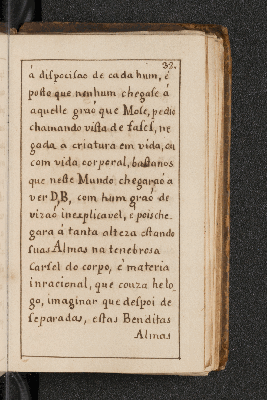 32.
á dispocisaõ de cada hum, é
posto que nenhum chegase á
aquelle graó que Mose, pedio
chamando vista de fases, ne
gada a criatura em vida, ou
com vida corporal, bastanos
que neste Mundo chegaraõ a
ver D,B, com hum graó de
vizaõ inexplicavel, e pois che
gara á tanta alteza estando
suas Almas na tenebrosa
Carsel do corpo, é materia
inracional, que couza he lo
go, imaginar que despoi de
separadas, estas Benditas
Almas